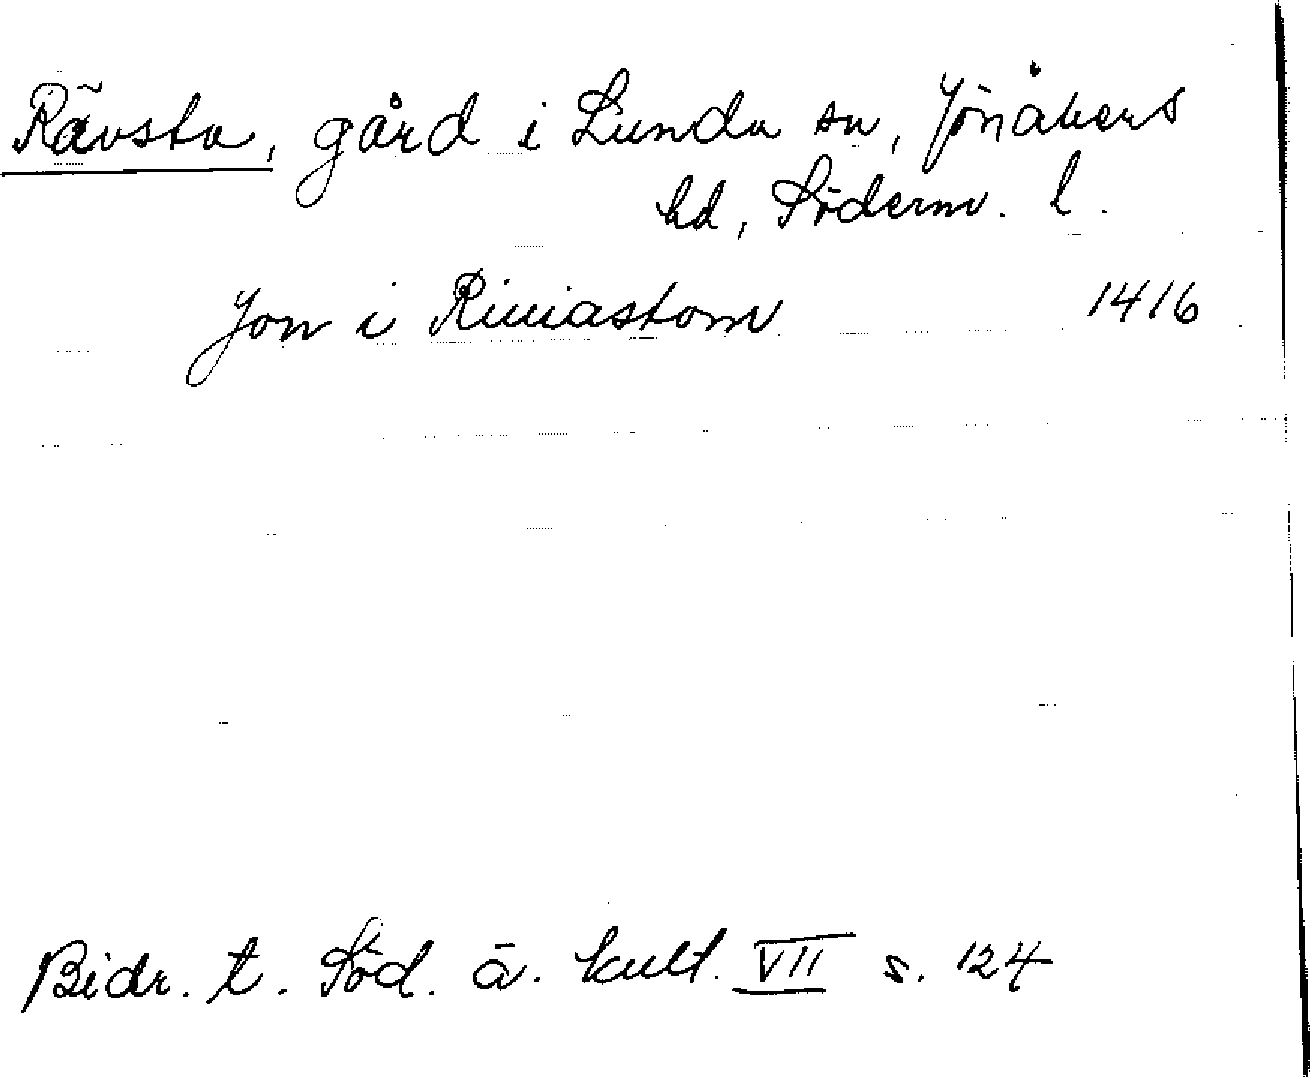 Rävsta, gård i Lunda sn, Jönåkers
hd, Söderm. l.
Jon i Riuiastom 1416
Bidr. t. Söd. ä. kult. VII s. 124